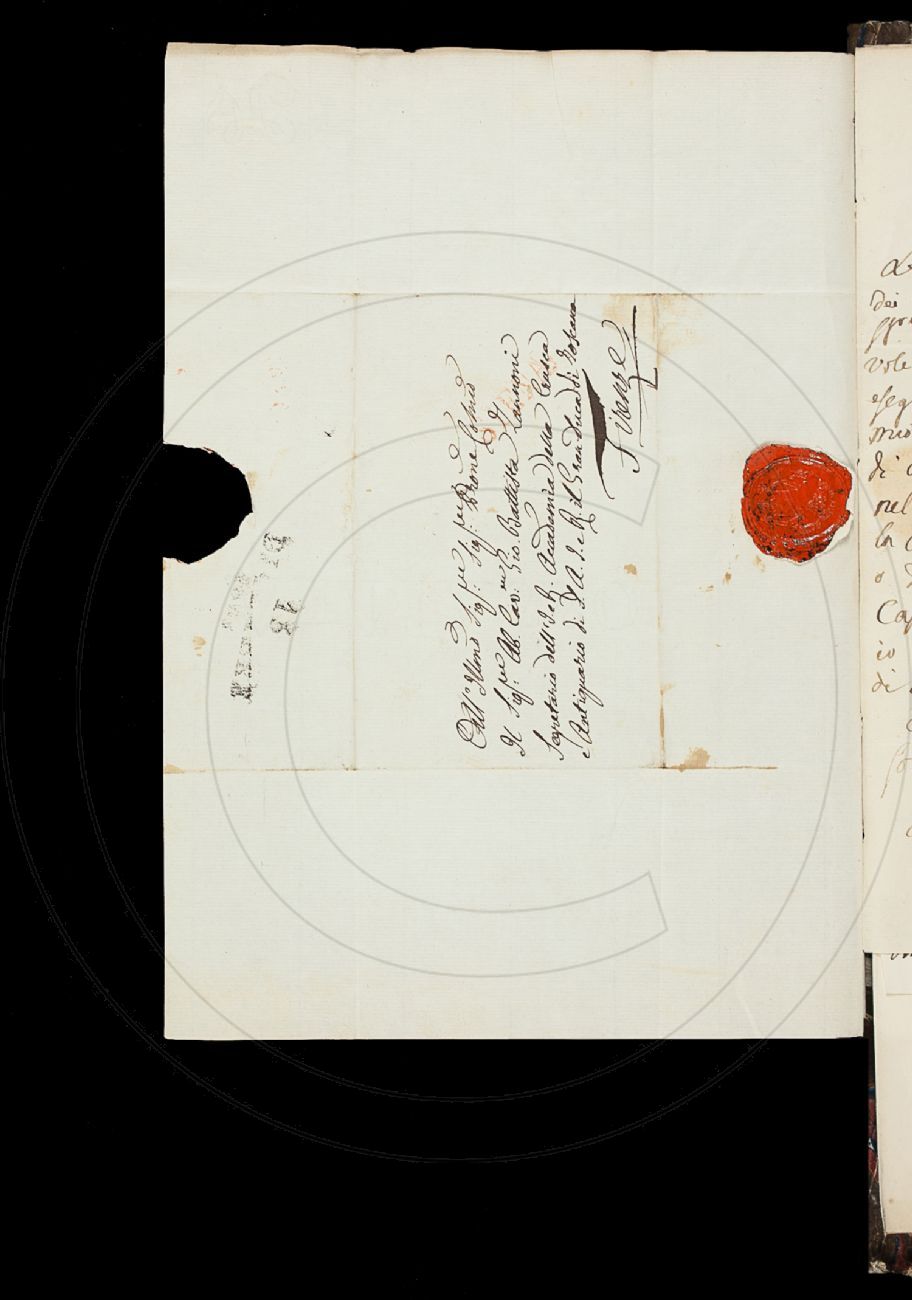 All' Illmo Sig.r Sig.r Prone Colmo
Il Sig.r Ab. Cav.re Gio. Battista Zannoni
Segretario dell' I. e R. Accademia della Crusca
e Antiquario di S. A. I. e R. il Gran Duca di Toscana
Firenze
Dei
vole
eseg
mio
di
nel
la
o
Cap
io
di